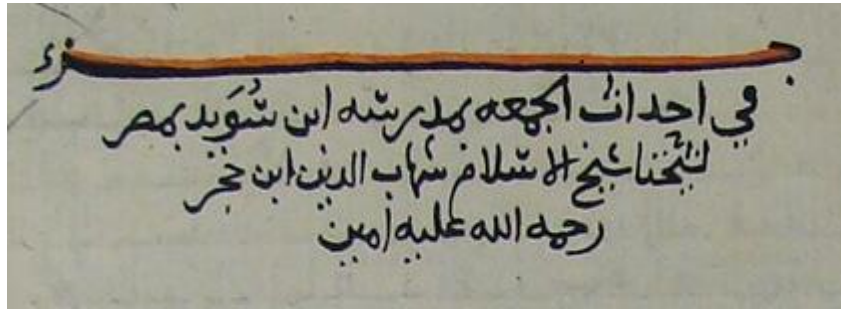 جزء
في احداث الجمعه بمدرسه ابن سُوَيد بمصر
لشيخنا شيخ الاسلام شهاب الدين ابن حجر
رحمه الله عليه امين